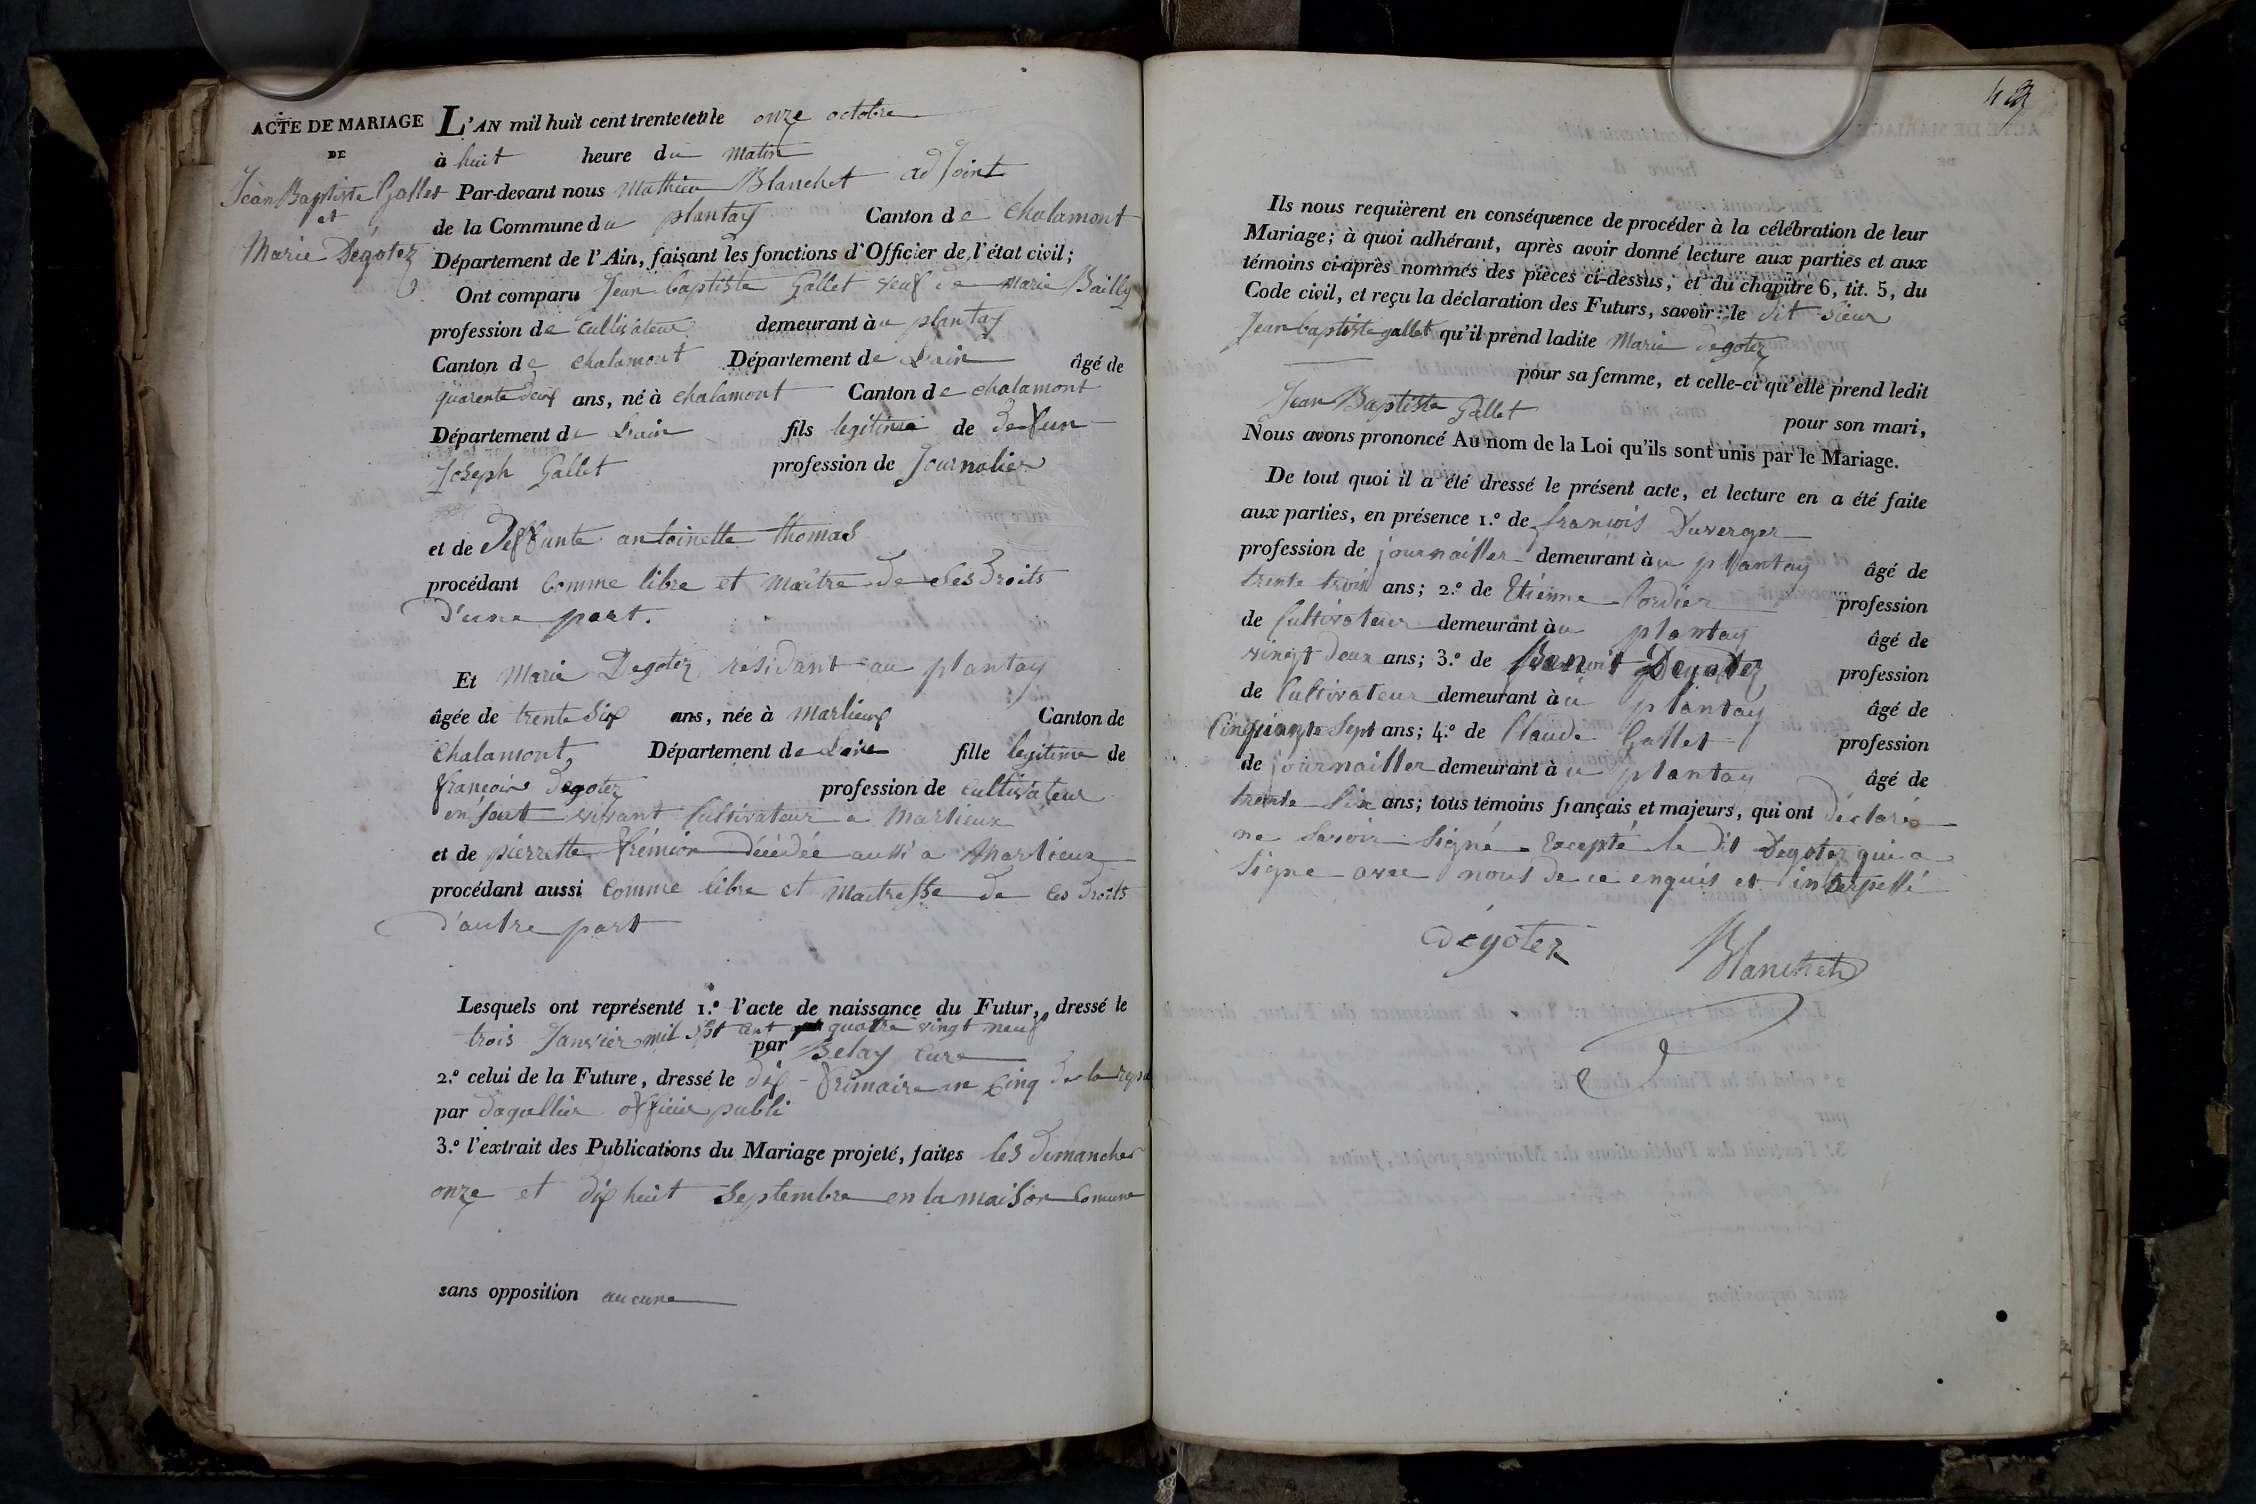 ACTE DE MARIAGE
DE
Jean Baptiste Gallet
et
Marie Dégotez
L'AN mil huit cent trente et le onze octobre
à huit heure du matin
Par-devant nous Mathieu Blanchet adjoint
de la Commune du plantay Canton de chalamont
Département de l'Ain, faisant les fonctions d'Officier de l'état civil;
Ont comparu Jean baptiste Gallet veuf de marie Bailly
profession de cultivateur demeurant à u plantay
Canton de chalamont Département de Lain âgé de
quarente deux ans, né à chalamont Canton de chalamont
Département de Lain fils legitime de defun
Joseph Gallet profession de Journalier
et de Deffunte antoinette thomas
procédant comme libre et maitre de ses droits
d'une part.
Et Marie Degotez résidant au plantay
âgée de trente six ans, née à marlieux Canton de
chalamont, Département de Lain fille legitime de
françois degotez profession de cultivateur
en sont vivant Cultivateur a Marlieux
et de pierrette frémion décédée aussi a Marlieux
procédant aussi comme libre et maitresse de ces droits
d'autre part
Lesquels ont représenté 1.º l'acte de naissance du Futur, dressé le
trois Janvier mil sept cent quatre vingt neuf
par Belay cure
2.º celui de la Future, dressé le dix frimaire an cinq de la repu
par dagallier officier publi
3.º l'extrait des Publications du Mariage projeté, faites les dimanches
onze et dix huit Septembre en la maison Comune
sans opposition aucune
Ils nous requièrent en conséquence de procéder à la célébration de leur
Mariage; à quoi adhérant, après avoir donné lecture aux parties et aux
témoins ci-après nommés des pièces ci-dessus, et du chapitre 6, tit. 5, du
Code civil, et reçu la déclaration des Futurs, savoir: le dit sieur
Jean baptiste gallet qu'il prend ladite Marie degotez
pour sa femme, et celle-ci qu'elle prend ledit
Jean Baptiste Gallet pour son mari,
Nous avons prononcé Au nom de la Loi qu'ils sont unis par le Mariage.
De tout quoi il a été dressé le présent acte, et lecture en a été faite
aux parties, en présence 1.º de françois Duverger
profession de journailler demeurant à u plantay âgé de
trente trois ans; 2.º de Etienne Cordier profession
de Cultivateur demeurant à u plantay âgé de
vingt deux ans; 3.º de Benoit Degotez profession
de Cultivateur demeurant à u plantay âgé de
Cinquante Sept ans; 4.º de Claude Gallet profession
de journailler demeurant à u plantay âgé de
trente Six ans; tous témoins français et majeurs, qui ont déclaré
ne Savoir Signé Excepté le dit Degotez qui a
Signe avec nous de ce enquis et interpellé
dégotez
Blanchet